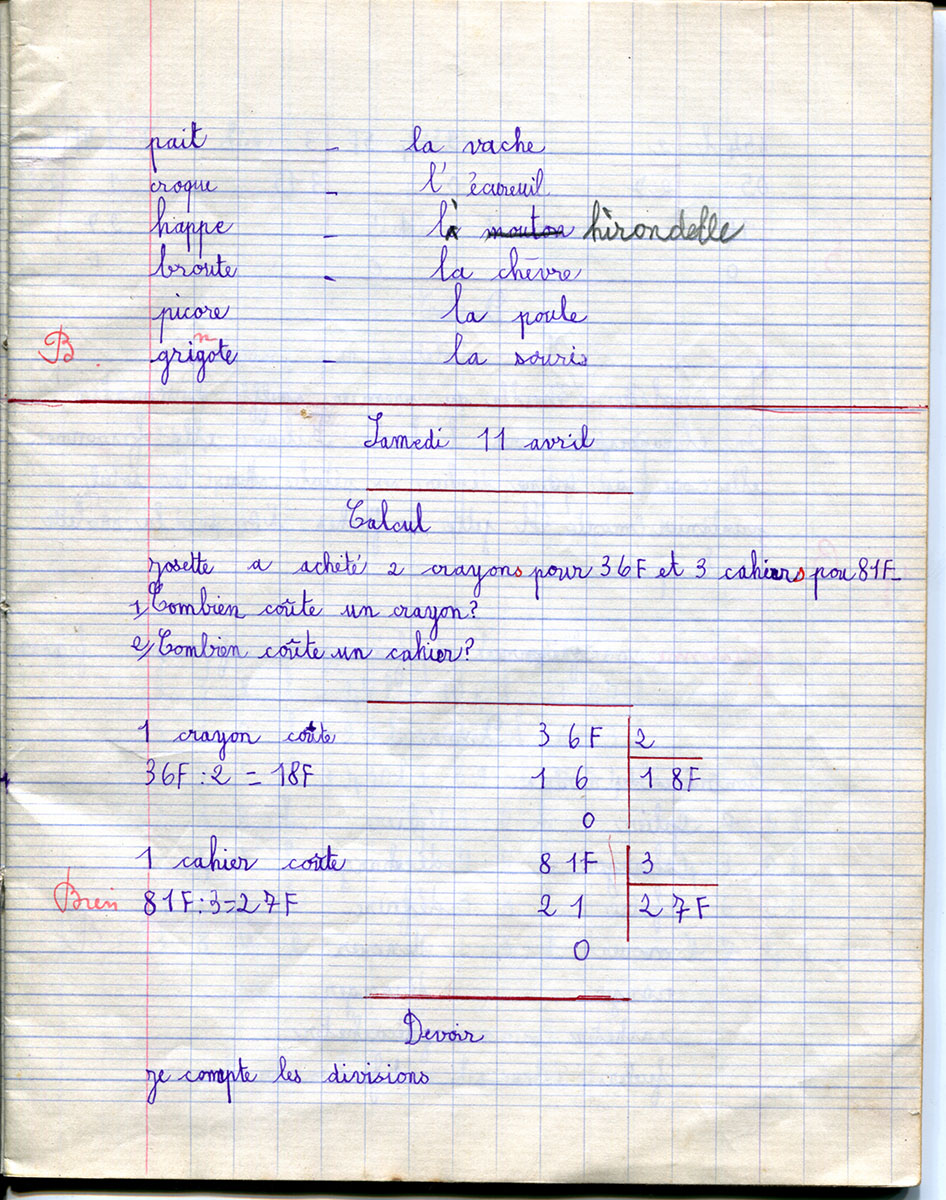 pait - la vache
croque - l'écureuil
happe - l' mouton hirondelle
broute - la chèvre
picore la poule
B. grignote - la souris
Samedi 11 avril
Calcul
Josette a acheté 2 crayons pour 36F et 3 cahiers pou 81F
1) Combien coûte un crayon?
2) Combien coûte un cahier?
1 crayon coûte 36F 2
36F : 2 = 18F 16 18F
0
1 cahier coûte 81F 3
Bien 81F : 3 = 27F 21 27F
0
Devoir
Je compte les divisions